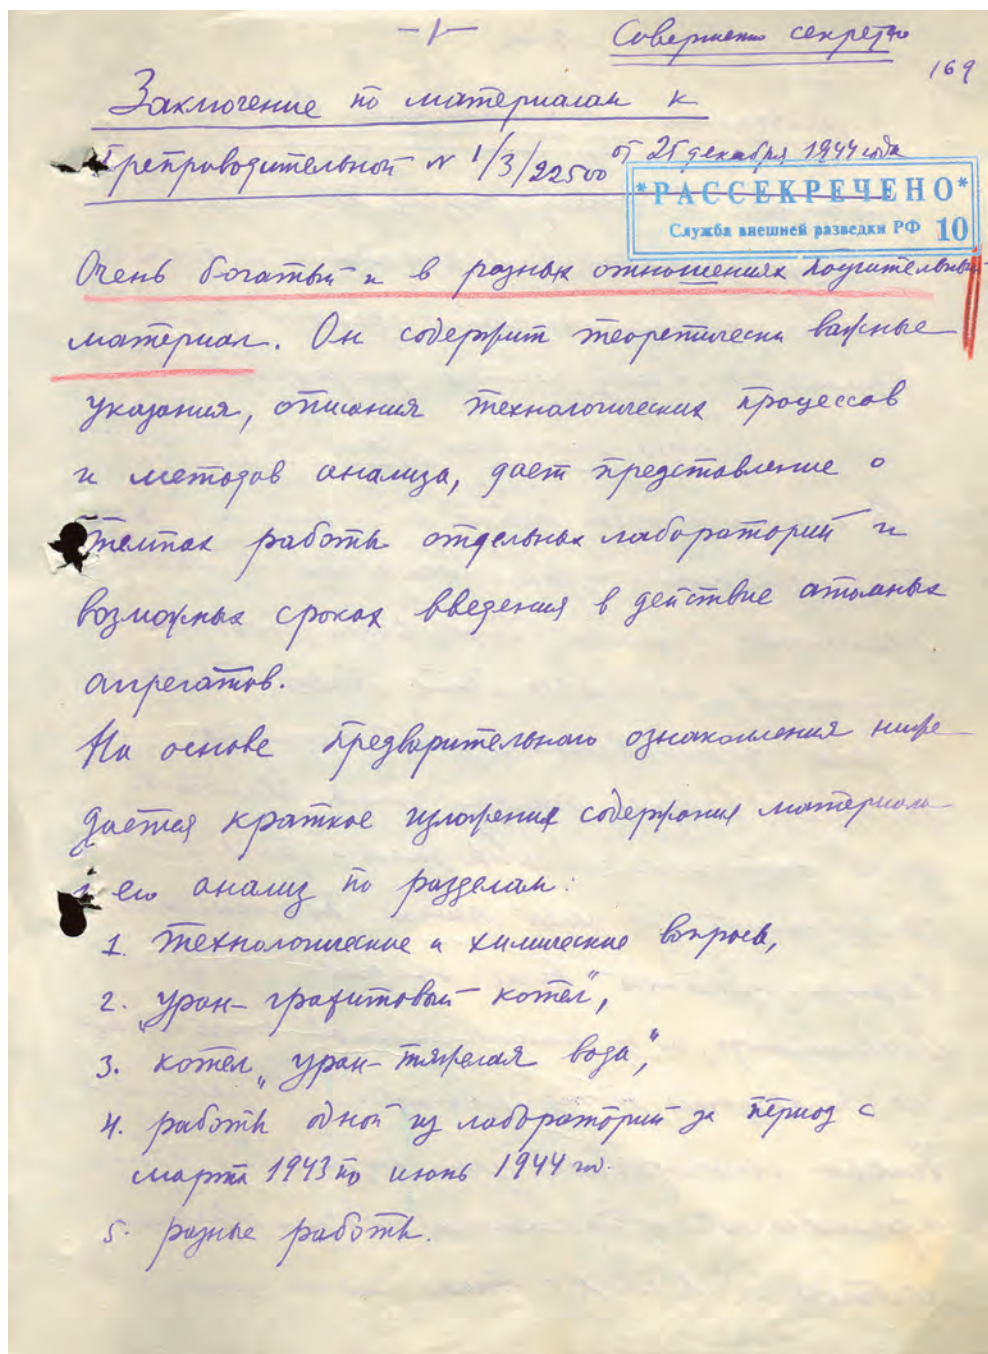 -1-
Совершенно секретно
169
Заключение по материалам к
препроводительной № 1/3/22500 от 25 декабря 1944 года
*РАССЕКРЕЧЕНО*
Служба внешней разведки РФ 10
Очень богатый и в разных отношениях поучительный
материал. Он содержит теоретически важные
указания, описания технологических процессов
и методов анализа, дает представление о
темпах работы отдельных лабораторий и
возможных сроках введения в действие атомных
агрегатов.
На основе предварительного ознакомления ниже
дается краткое изложение содержания материала
и его анализ по разделам:
1. технологические и химические вопросы,
2. „уран-графитовый котел",
3. котел „уран-тяжелая вода",
4. работы одной из лабораторий за период с
марта 1943 по июнь 1944 гг.
5. разные работы.